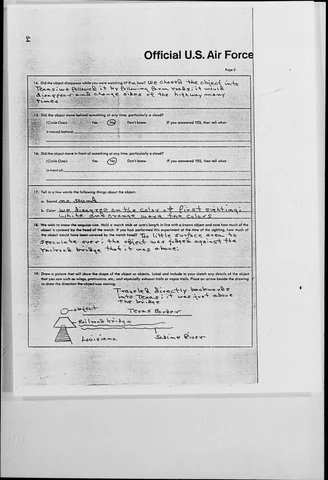 Official U.S. Air Force
Page 5
14. Did the object disappear while you were watching it? If so, how? We chased the object into
Texas; we followed it by following farm roads; it would
disappear and change sides of the highway many
times
15. Did the object move behind something at any time, particularly a cloud?
(Circle One): Yes No Don't know. If you answered YES, then tell what
it moved behind:
16. Did the object move in front of something at any time, particularly a cloud?
(Circle One): Yes No Don't know. If you answered YES, then tell what
in front of:
17. Tell in a few words the following things about the object:
a. Sound no sound
b. Color We disagree on the color of first sighting;
white and orange were the colors
18. We wish to know the angular size. Hold a match stick at arm's length in line with a known object and note how much of the
object is covered by the head of the match. If you had performed this experiment at the time of the sighting, how much of
the object would have been covered by the match head? Too little surface area to
speculate over; the object was judged against the
railroad bridge that it was above.
19. Draw a picture that will show the shape of the object or objects. Label and include in your sketch any details of the object
that you saw such as wings, protrusions, etc., and especially exhaust trails or vapor trails. Place an arrow beside the drawing
to show the direction the object was moving.
Traveled directly backwards
into Texas; it was just above
the bridge
object
Texas Border
Railroad bridge
Louisiana
Sabine River